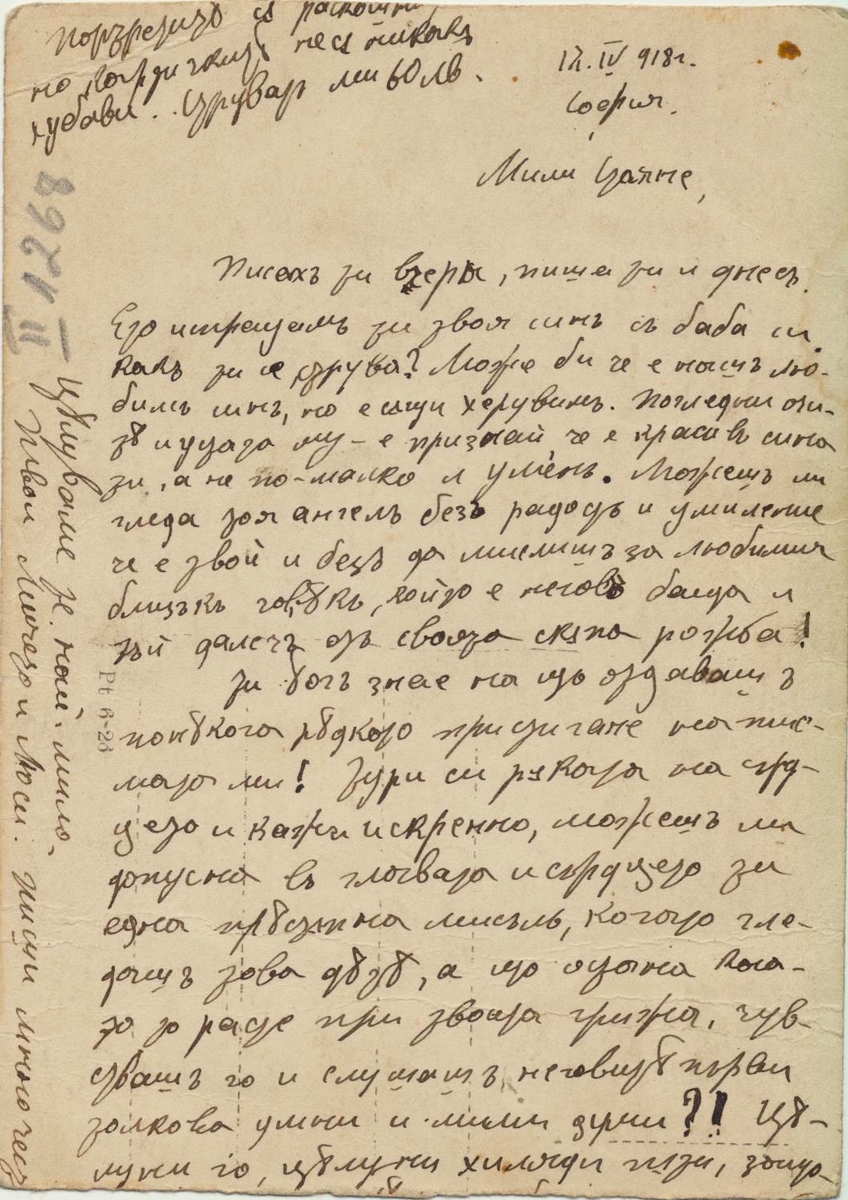 Портретитѣ са разкошни
но картички, не са никакъ
хубави. Струватъ ми 60 лв.
12.IV 918 г.
София.
Мили Цанне,
Писахъ ти вчера, пиша ти и днесъ.
Его испращамъ ти твоя синъ съ баба си.
Какъ ти се струва? Може би че е нашъ лю-
бимъ синъ, но е същи херувимъ. Погледни очи-
тѣ и устата му – е признай че е красивъ сина
ти, а не по-малко и уменъ. Можешъ ли
гледа тоя ангелъ безъ радость и умиление
че е твой и безъ да мислишъ за любимия
близъкъ човѣкъ, който е неговъ баща и
тъй далечъ отъ своята скъпа рожба!
Ти Богъ знае на що отдавашъ
понѣкога рѣдкото пристигане на пис-
мата ми! Тури си ръката на сър-
цето и кажи искренно, можешъ ли
допусна въ главата и сърцето ти
една прѣстъпна мисъль, когато гле-
дашъ това дѣте, а що остана кога-
то то расте при твоята грижа, чув-
ствашъ го и слушашъ неговитѣ първи
толкова умни и мили думи?! Цѣ-
луни го, цѣлуни хиляди пъти, защо-
II 1268
Цѣлуваме те най-мило.
Твои Мичето и Люси. Пиши много чес
Pt 6-28